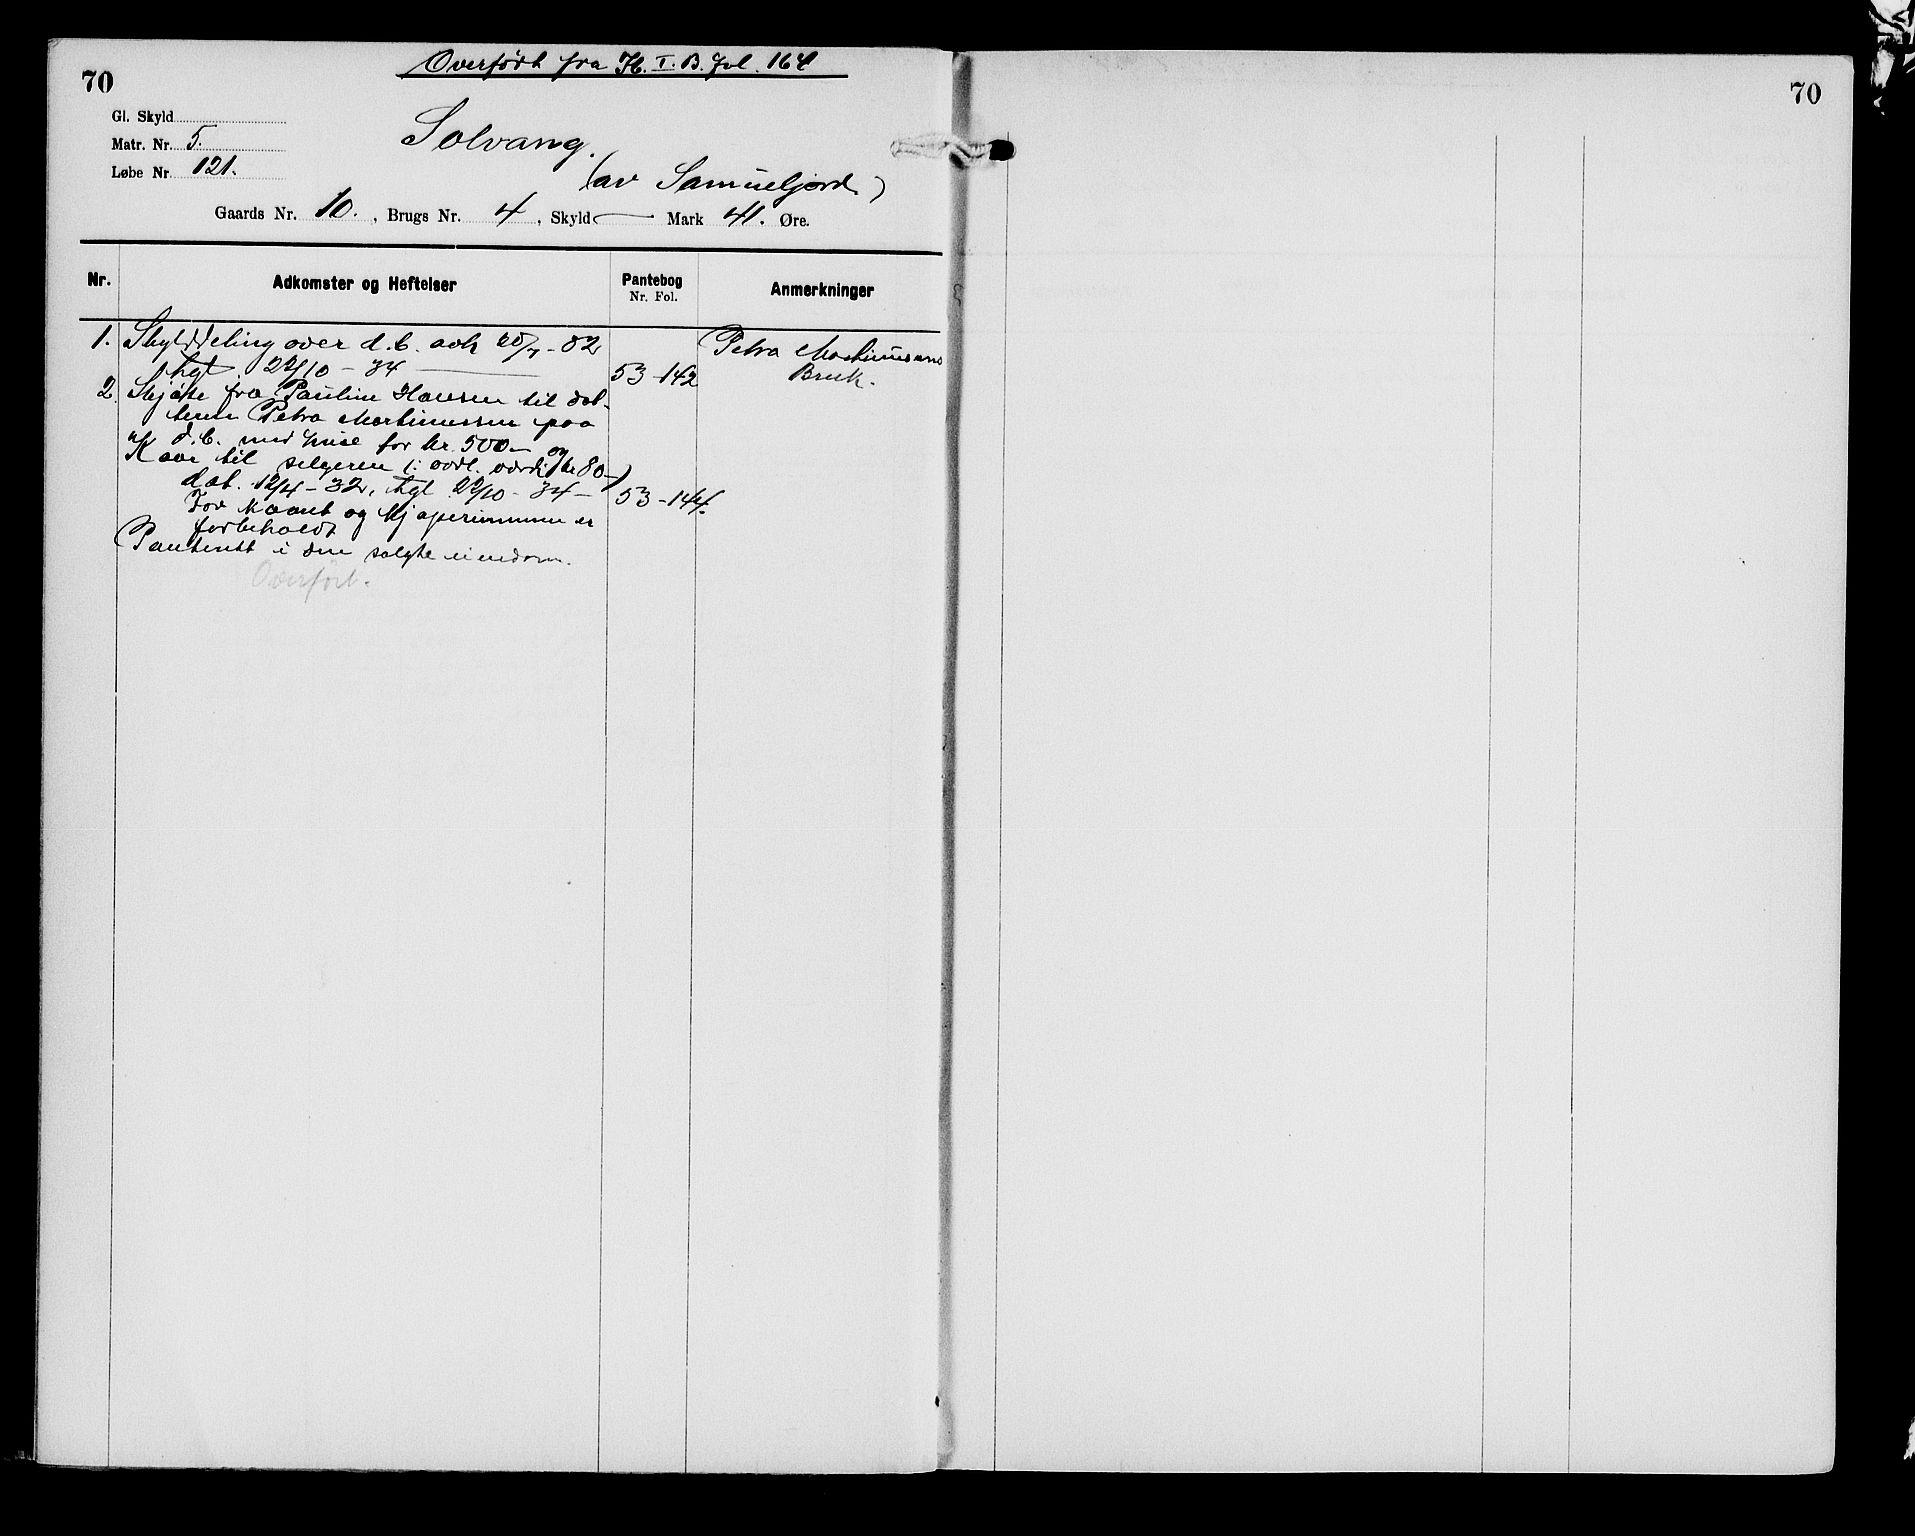 70
Overført fra H. I. B. fol. 164
Gl. Skyld
Matr. Nr. 5.
Løbe Nr. 121.
Solvang.
(av Samueljord)
Gaards Nr. 10. , Brugs Nr. 4 , Skyld — Mark 41. Øre.
Nr.
Adkomster og Heftelser
Pantebog
Nr. Fol.
Anmerkninger
1. Skylddeling over d. b. avh 20/7 - 32
tgl. 22/10 - 34 — 53 - 142
Petra Martinussens
Bruk.
2. Skjøte fra Pauline Hansen til dat-
teren Petra Martinussen paa
d. b. med huse for kr. 500 - og
Kaar til selgeren (: aarl. værdi kr 80 -)
dat. 12/4 - 32, tgl 22/10 - 34 — 53 - 144.
For kaaret og kjøpesummen er
forbeholdt
Panterett i den solgte eiendom.
Overført.
70